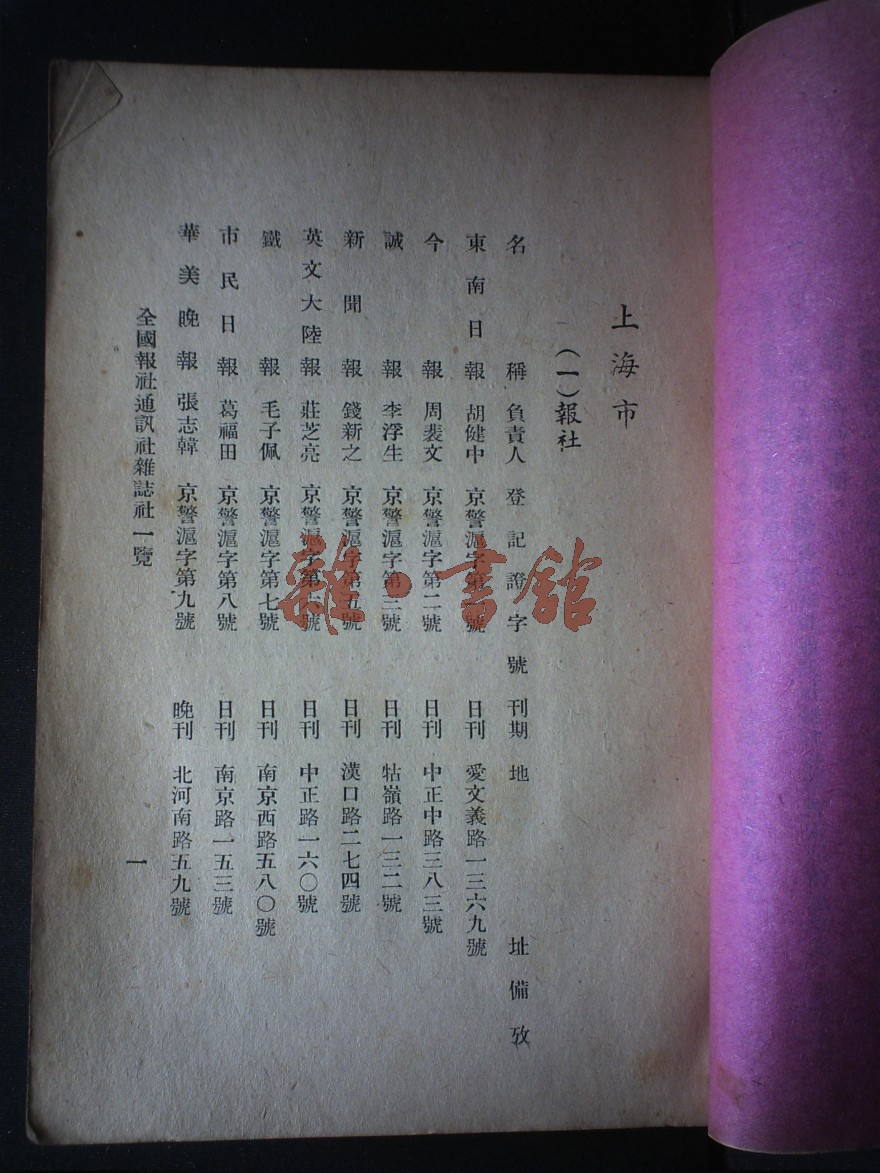 上海市
(一)報社
名稱負責人登記證字號刊期地址備攷
東南日報胡健中京警滬字第 號日刊愛文義路一三六九號
今報周裴文京警滬字第二號日刊中正中路三八三號
誠報李浮生京警滬字第三號日刊牯嶺路一三二號
新聞報錢新之京警滬字第五號日刊漢口路二七四號
英文大陸報莊芝亮京警滬字第六號日刊中正路一六〇號
鐵報毛子佩京警滬字第七號日刊南京西路五八〇號
市民日報葛福田京警滬字第八號日刊南京路一五三號
華美晚報張志韓京警滬字第九號晚刊北河南路五九號
全國報社通訊社雜誌社一覽
一
雜·書館